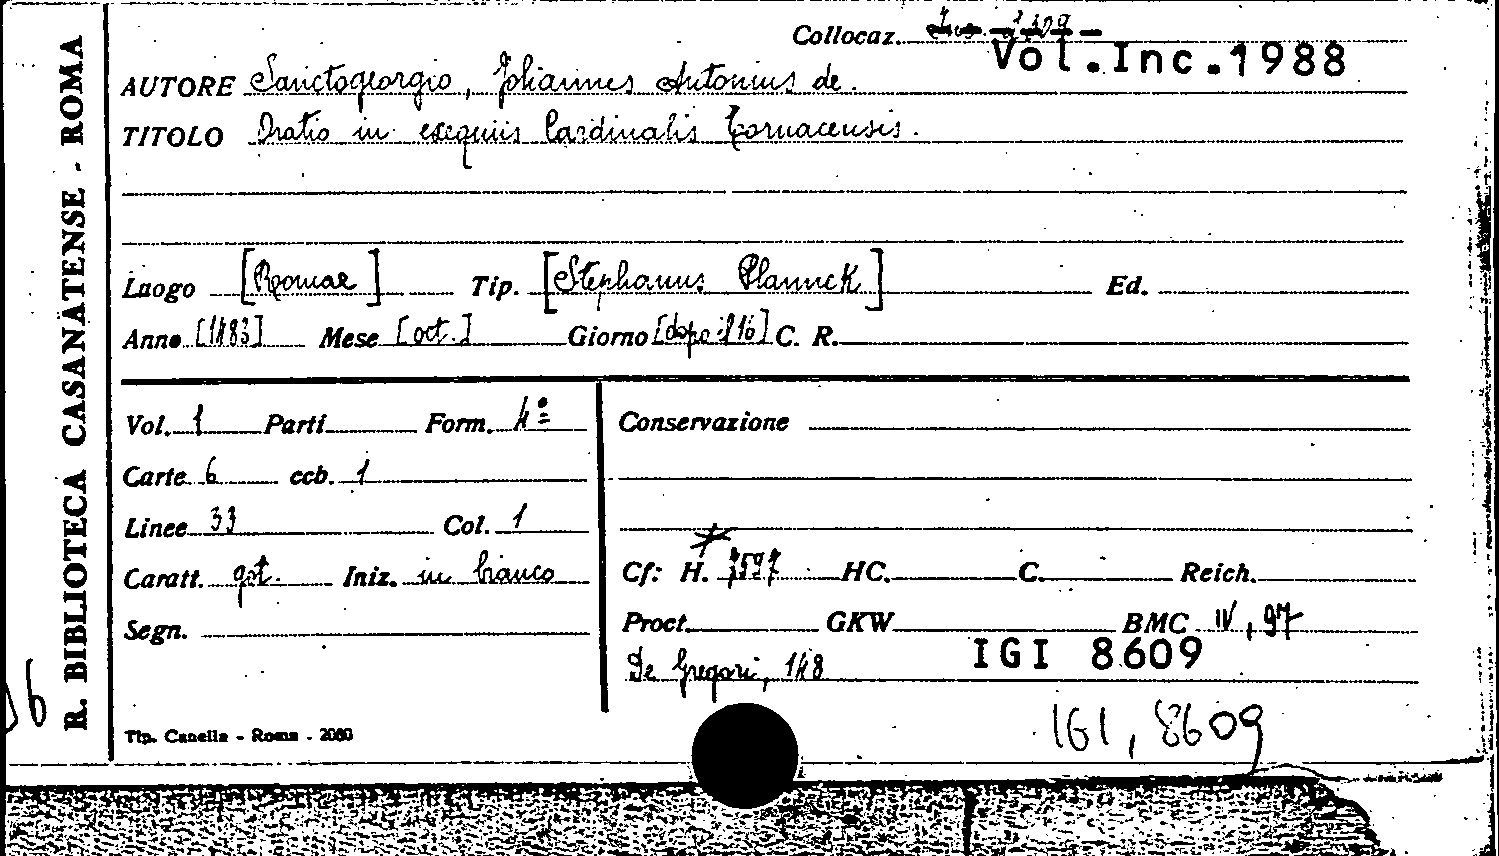 R. BIBLIOTECA CASANATENSE - ROMA
Collocaz. Inc.
Vol.Inc.1988
AUTORE Sanctogeorgio, Johannes Antonius de.
TITOLO Oratio in exequiis Cardinalis Tornacensis.
Luogo [Romae] Tip. [Stephanus Plannck] Ed.
Anno [1483] Mese [oct.] Giorno [dopo il 16] C. R.
Vol. 1 Parti Form. 4º
Conservazione
Carte 6 ccb. 1
Linee 33 Col. 1
Caratt. got. Iniz. in bianco
Cf: H. *7597 HC. C. Reich.
Segn.
Proct. GKW BMC IV, 97
De Gregori, 148
IGI 8609
IGI, 8609
Tip. Canella - Roma - 2060